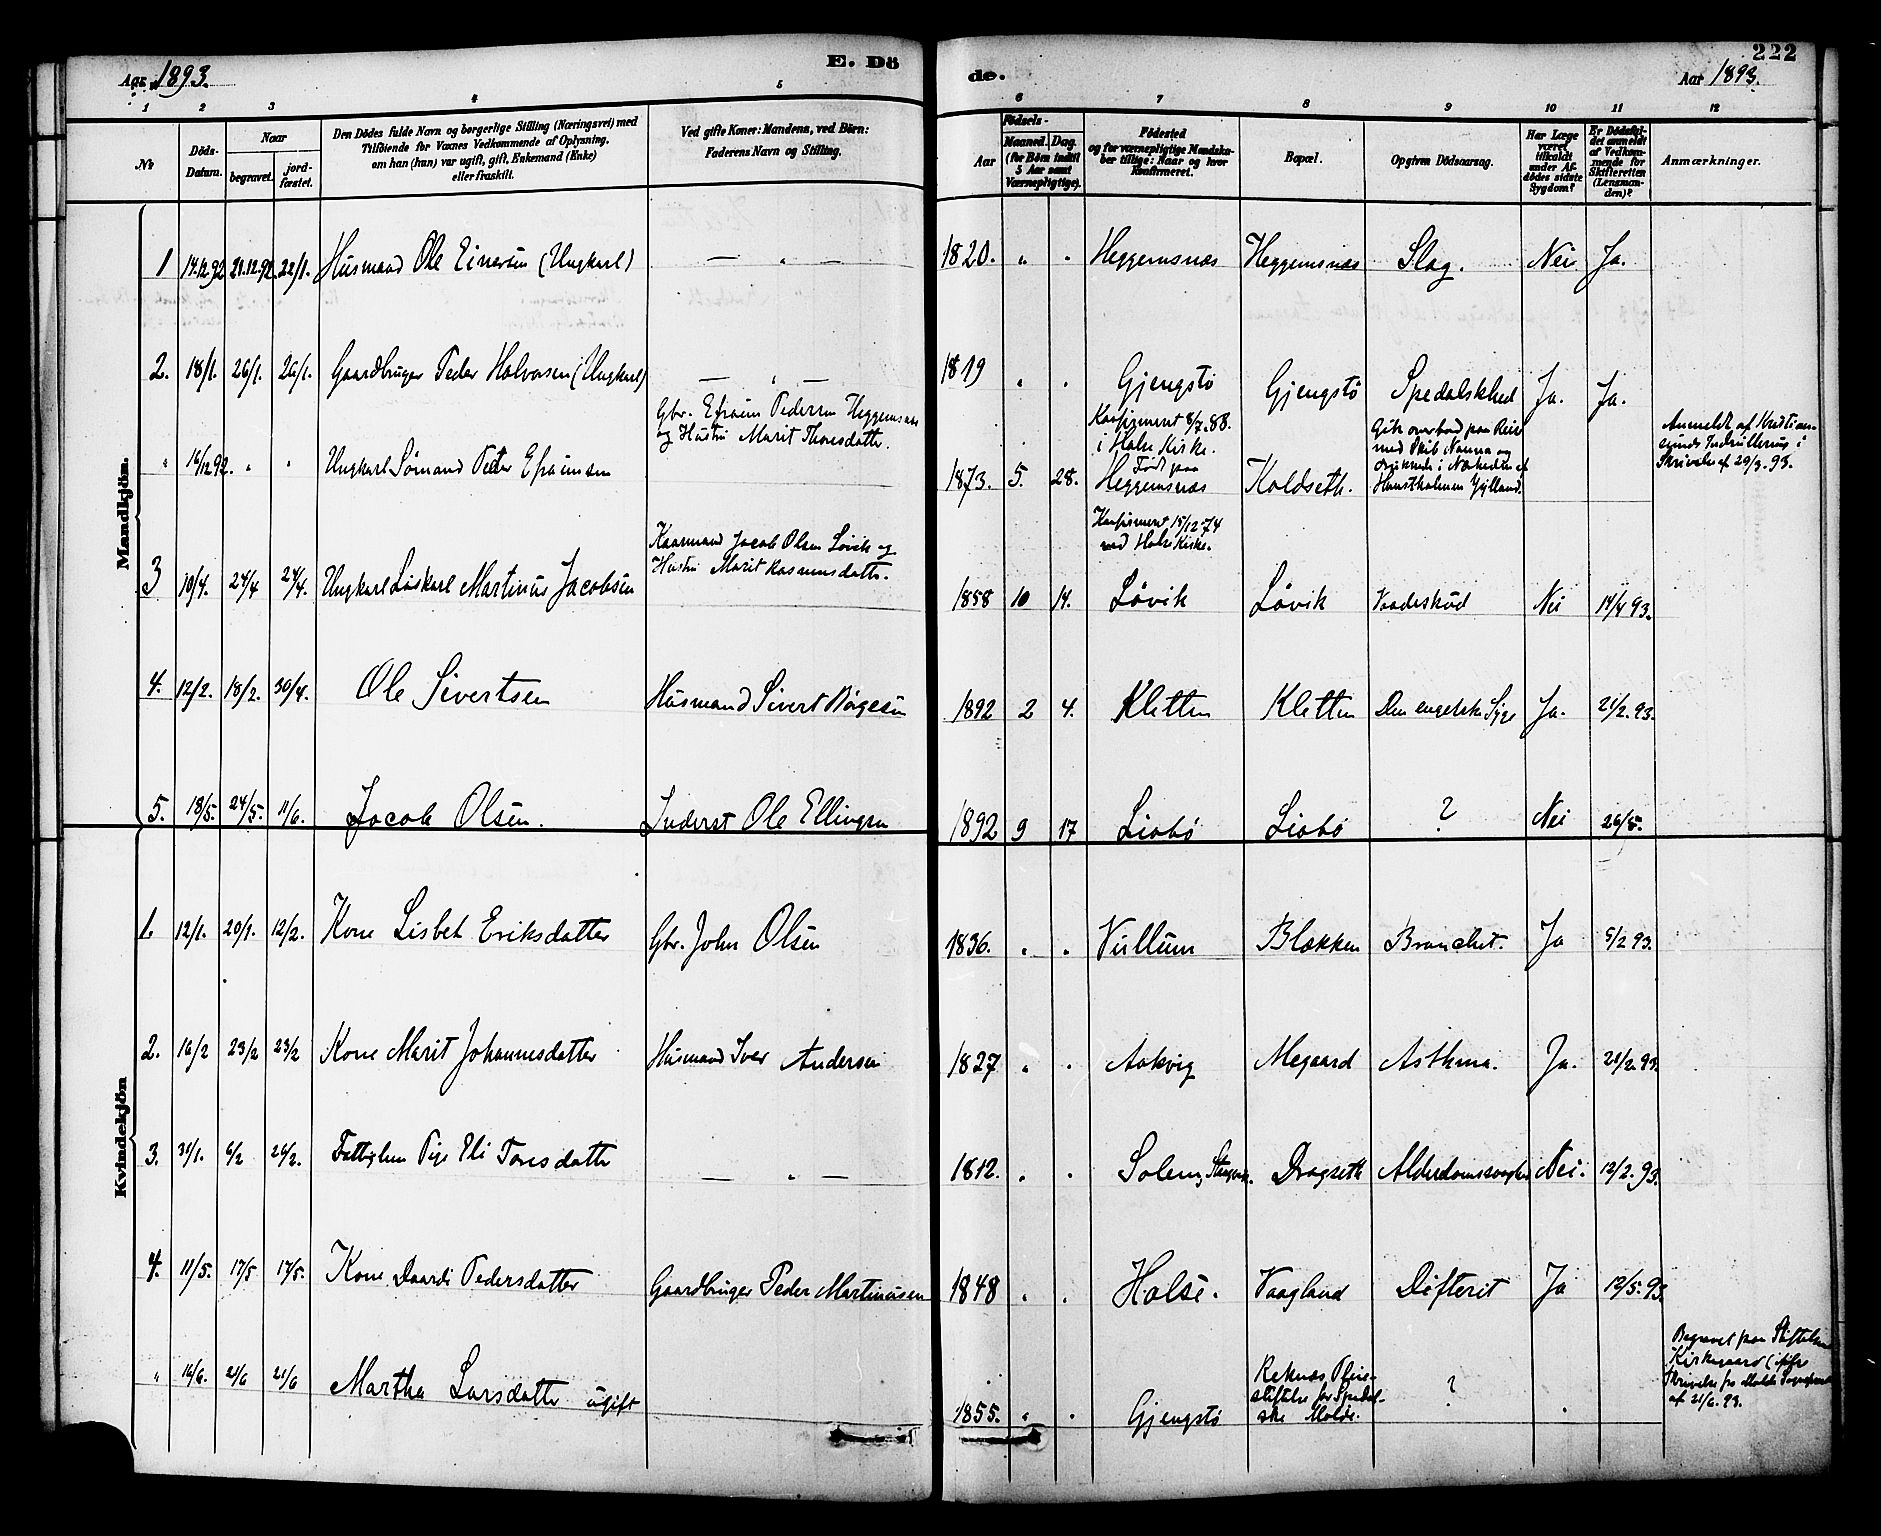 Aar 1893.
E. Dö
de.
222
Aar 1893.
1 2 3 4 5 6 7 8 9 10 11 12
No
Döds-Datum.
Naar
begravet.
jord-fæstet.
Den Dödes fulde Navn og borgerlige Stilling (Næringsvei) med
Tilföiende for Voxnes Vedkommende af Oplysning,
om han (hun) var ugift, gift, Enkemand (Enke)
eller fraskilt.
Ved gifte Koner: Mandens, ved Börn:
Faderens Navn og Stilling.
Födsels-
Aar
Maaned. Dag.
(for Börn indtil
5 Aar samt
Værnepligtige).
Födested
og for værnepligtige Mandska-
ber tillige: Naar og hvor
konfirmeret.
Bopæl.
Opgiven Dödsaarsag.
Har Læge
været
tilkaldt
under Af-
dödes sidste
Sygdom?
Er Dödsfal-
det anmeldt
af Vedkom-
mende for
Skifteretten
(Lensman-
den)?
Anmærkninger.
Mandkjön.
1 14.12.92 21.12.92 22/1. Husmand Ole Einersen (Ungkarl) — " — 1820. " " Heggemsnæs Heggemsnæs Slag. Nei Ja.
2. 18/1. 26/1. 26/1. Gaardbruger Peder Halvorsen (Ungkarl) — " — 1819 " " Gjengstø Gjengstø Spedalskhed Ja. Ja.
" 16/12 92. " " Ungkarl Sømand Peder Efraimsen
Gbr. Efraim Pedersen Heggemsnæs
og Hustru Marit Thoresdatter.
1873. 5. 28.
Konfirmeret 8/7.88.
i Halse Kirke.
Født paa
Heggemsnæs
Koldseth.
Gik overbord paa Reise
med Skib Nanna og
druknede i Nærheden af
Hanstholmen Jylland.
Anmeldt af Kristian-
sunds Indrullering i
Skrivelse af 20/3.93.
3 10/4. 24/4 24/4. Ungkarl Løskarl Martinus Jacobsen
Kaarmand Jacob Olsen Løvik og
Hustru Marit Rasmusdatter.
1858 10 14.
Konfirmeret 15/12 74
ved Halse Kirke.
Løvik Løvik Vaadeskud Nei 14/4 93.
4. 12/2. 18/2. 30/4. Ole Sivertsen Husmand Sivert Børgesen 1892 2 4. Kletten Kletten Den engelske Syge Ja. 21/2.93.
5. 18/5. 24/5. 11/6. Jacob Olsen. Inderst Ole Ellingsen 1892 9 17 Liabø Liabø ? Nei 26/5.
Kvindekjön
1. 12/1. 20/1. 12/2. Kone Lisbet Eriksdatter Gbr. John Olsen 1836. " " Vullum Blekken Bronchit. Ja 5/2 93.
2. 16/2 23/2 23/2 Kone Marit Johannesdatter Husmand Iver Andersen 1827 " " Aakvig Megaard Asthma. Ja. 21/2.93.
3. 31/1. 6/2 26/2. Fattiglem Pige Eli Toresdatter — " — 1812. " " Solem, Stangvik. Dragseth Alderdomssvaghed Nei. 12/2.93.
4. 11/5. 17/5 17/5. Kone Daardi Pedersdatter Gaardbruger Peder Martinusen 1848 " " Halse. Vaagland Difterit Ja 12/5.93
" 16/6. 21/6 21/6 Martha Larsdatter ugift 1855. " " Gjengstø
Reknæs Pleie-
stiftelse for Spedal-
ske Molde.
? "
Begravet paa Stiftelsens
Kirkegaard (ifølge
Skrivelse fra Molde
af 21/6.93.